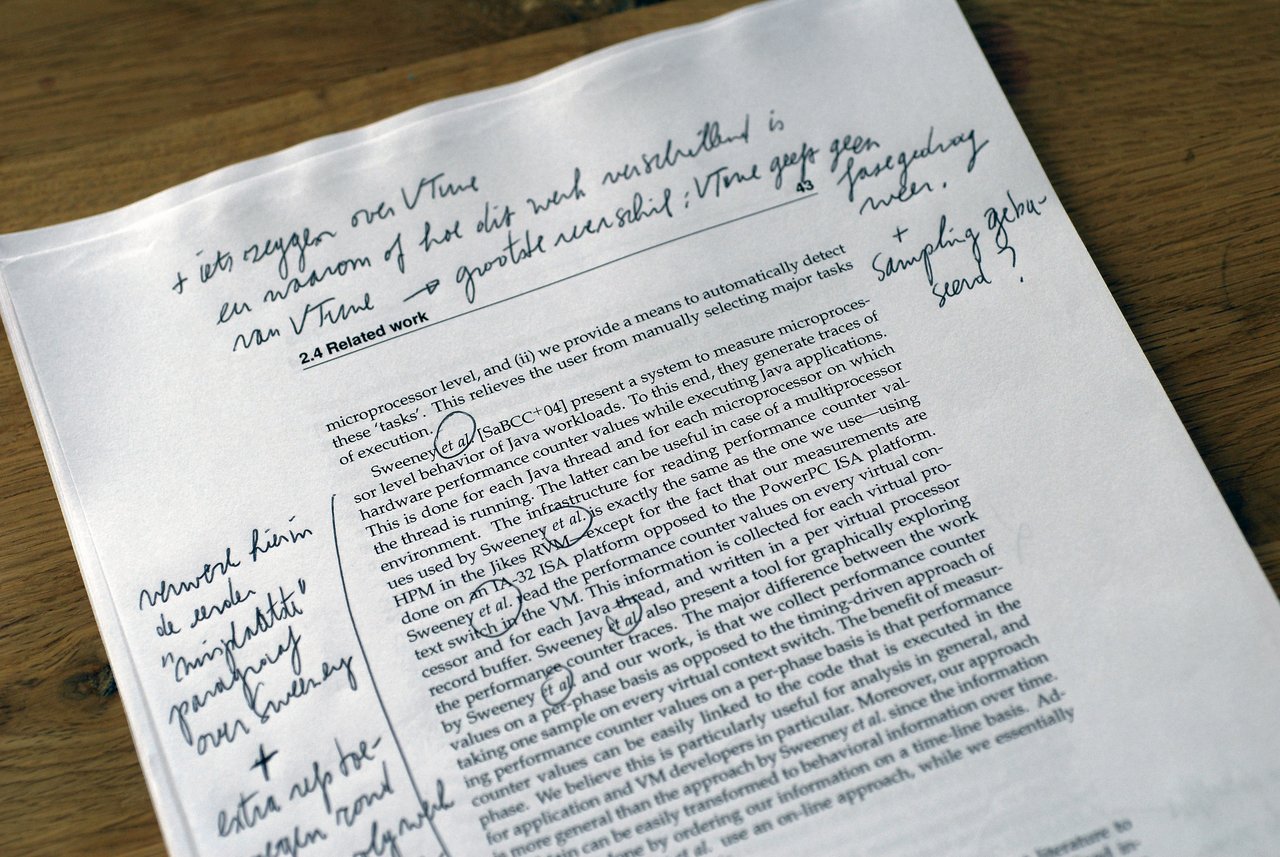 + iets zeggen over VTune
en waarom of hoe dit werk verschillend is
van VTune → grootste verschil: VTune geeft geen
fasegedrag
weer.
+
Sampling geba-
seerd?
2.4 Related work 43
microprocessor level, and (ii) we provide a means to automatically detect
these ‘tasks’. This relieves the user from manually selecting major tasks
of execution.
Sweeney et al. [SaBCC+04] present a system to measure microproces-
sor level behavior of Java workloads. To this end, they generate traces of
hardware performance counter values while executing Java applications.
This is done for each Java thread and for each microprocessor on which
the thread is running. The latter can be useful in case of a multiprocessor
environment. The infrastructure for reading performance counter val-
ues used by Sweeney et al. is exactly the same as the one we use—using
HPM in the Jikes RVM except for the fact that our measurements are
done on an IA-32 ISA platform opposed to the PowerPC ISA platform.
Sweeney et al. read the performance counter values on every virtual con-
text switch in the VM. This information is collected for each virtual pro-
cessor and for each Java thread, and written in a per virtual processor
record buffer. Sweeney et al. also present a tool for graphically exploring
the performance counter traces. The major difference between the work
by Sweeney et al. and our work, is that we collect performance counter
values on a per-phase basis as opposed to the timing-driven approach of
taking one sample on every virtual context switch. The benefit of measur-
ing performance counter values on a per-phase basis is that performance
counter values can be easily linked to the code that is executed in the
phase. We believe this is particularly useful for analysis in general, and
for application and VM developers in particular. Moreover, our approach
is more general than the approach by Sweeney et al. since the information
can be easily transformed to behavioral information over time.
done by ordering our information on a time-line basis. Ad-
et al. use an on-line approach, while we essentially
literature to
verwerk hierin
de eerder
"misplaatste"
paragraaf
over Sweeney
+
extra refs toe-
voegen rond